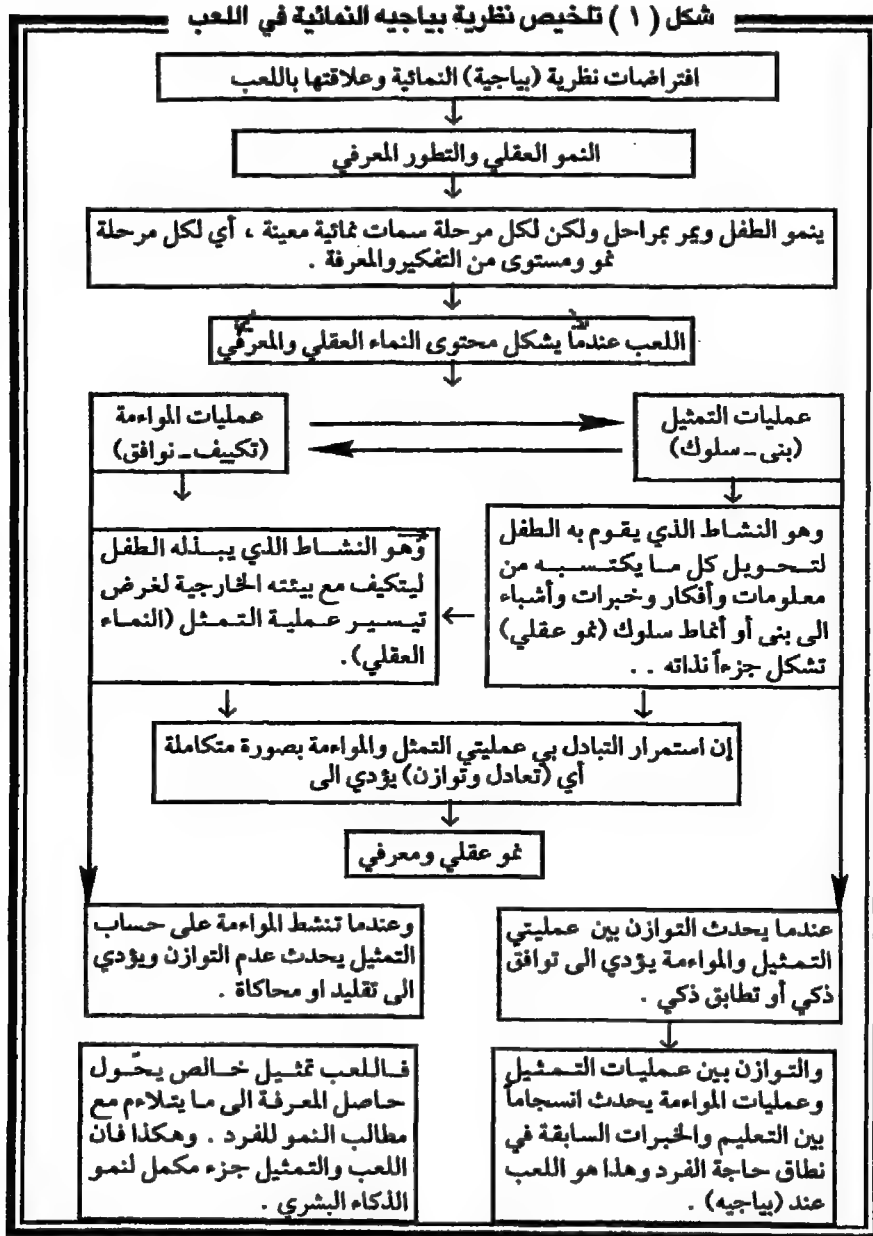 شكل ( ١ ) تلخيص نظرية بياجيه النمائية في اللعب
افتراضات نظرية (بياجية) النمائية وعلاقتها باللعب
النمو العقلي والتطور المعرفي
ينمو الطفل ويمر بمراحل ولكن لكل مرحلة سمات نمائية معينة ، أي لكل مرحلة
نمو ومستوى من التفكيروالمعرفة .
اللعب عندما يشكل محتوى النماء العقلي والمعرفي
عمليات التمثيل
(بنى - سلوك)
عمليات المواءمة
(تكييف - نوافق)
وهو النشاط الذي يقوم به الطفل
لتحويل كل ما يكتسبه من
معلومات وأفكار وخبرات وأشباء
الى بنى أو أنماط سلوك (نمو عقلي)
تشكل جزءاً نذاته . .
وهو النشاط الذي يبذله الطفل
ليتكيف مع بيئته الخارجية لغرض
تيسير عملية التمثل (النماء
العقلي).
إن استمرار التبادل بي عمليتي التمثل والمواءمة بصورة متكاملة
أي (تعادل وتوازن) يؤدي الى
نمو عقلي ومعرفي
عندما يحدث التوازن بين عمليتي
التمثيل والمواءمة يؤدي الى توافق
ذكي أو تطابق ذكي .
وعندما تنشط المواءمة على حساب
التمثيل يحدث عدم التوازن ويؤدي
الى تقليد او محاكاة .
والتوازن بين عمليات التمثيل
وعمليات المواءمة يحدث انسجاماً
بين التعليم والخبرات السابقة في
نطاق حاجة الفرد وهذا هو اللعب
عند (بياجيه) .
فاللعب تمثيل خالص يحّول
حاصل المعرفة الى ما يتلاءم مع
مطالب النمو للفرد . وهكذا فان
اللعب والتمثيل جزء مكمل لنمو
الذكاء البشري .